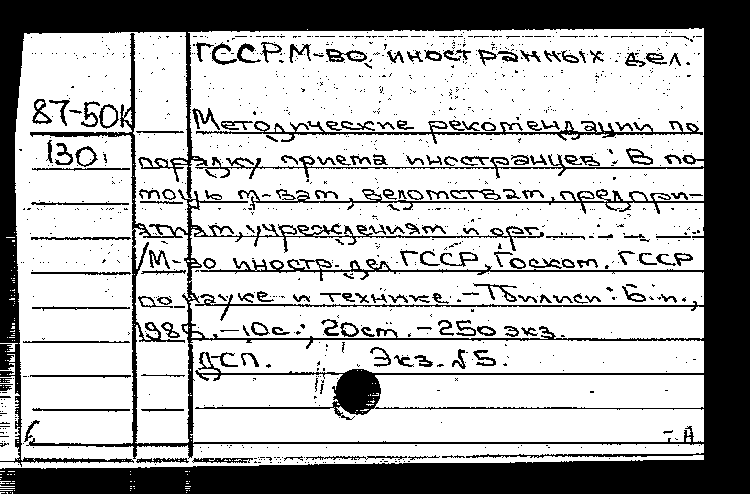 ГССР. М-во иностранных дел.
87-50К
Методические рекомендации по
130
порядку приема иностранцев: В по-
мощь м-вам, ведомствам, предпри-
ятиям, учреждениям и орг.
/М-во иностр. дел ГССР, Госком. ГССР
по науке и технике. – Тбилиси: Б.и.,
198 . – 10с.; 20см. – 250 экз.
ДСП. Экз. №5.